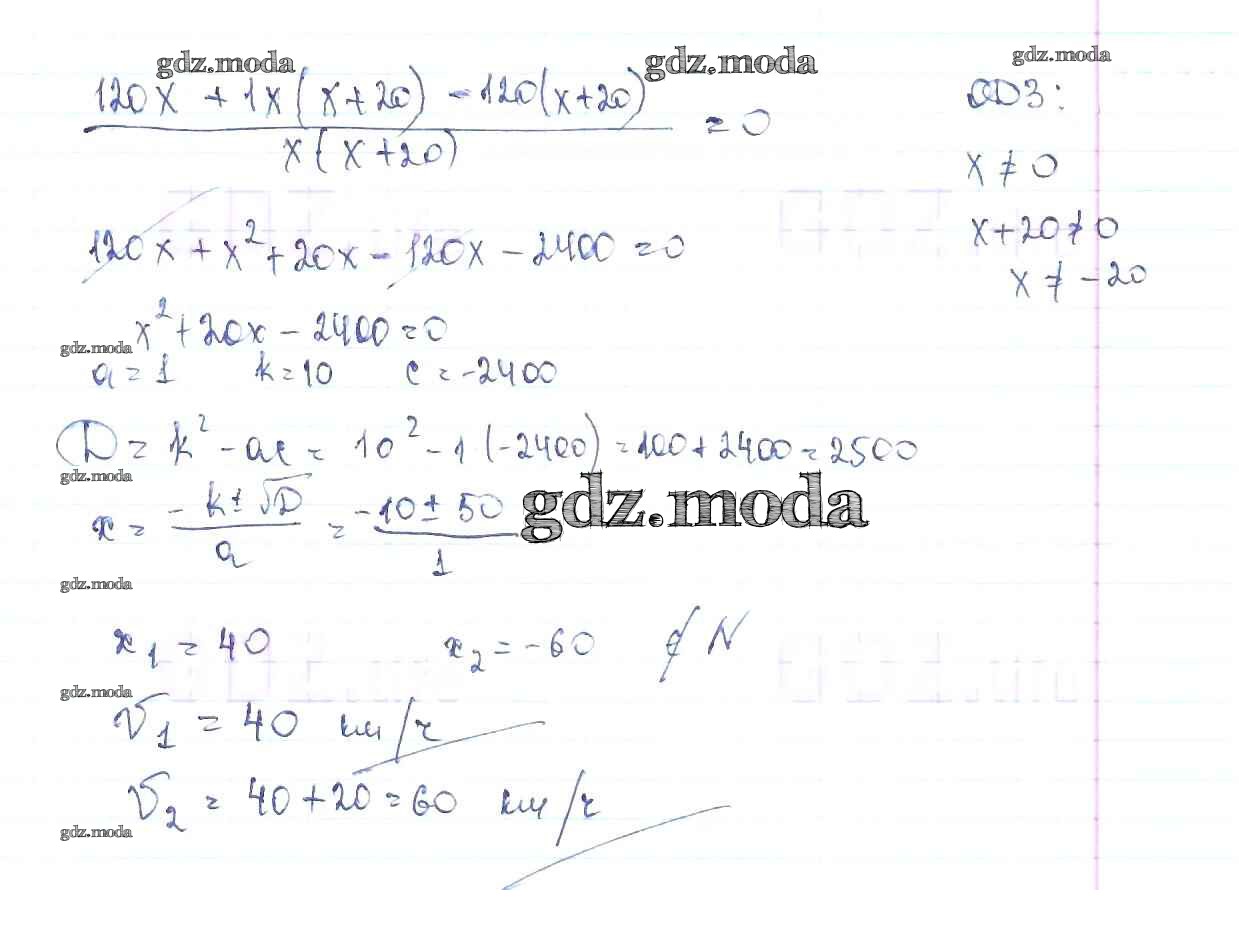 gdz.moda gdz.moda gdz.moda
(120x + 1x(x+20) - 120(x+20)) / (x(x+20)) = 0
ОДЗ:
x ≠ 0
x+20 ≠ 0
x ≠ -20
120x + x² + 20x - 120x - 2400 = 0
x² + 20x - 2400 = 0
gdz.moda
a = 1 k = 10 c = -2400
D = k² - ac = 10² - 1(-2400) = 100 + 2400 = 2500
gdz.moda
x = (-k ± √D) / a = (-10 ± 50) / 1
gdz.moda
gdz.moda
x₁ = 40 x₂ = -60 ∉ N
gdz.moda
V₁ = 40 км/ч
V₂ = 40 + 20 = 60 км/ч
gdz.moda